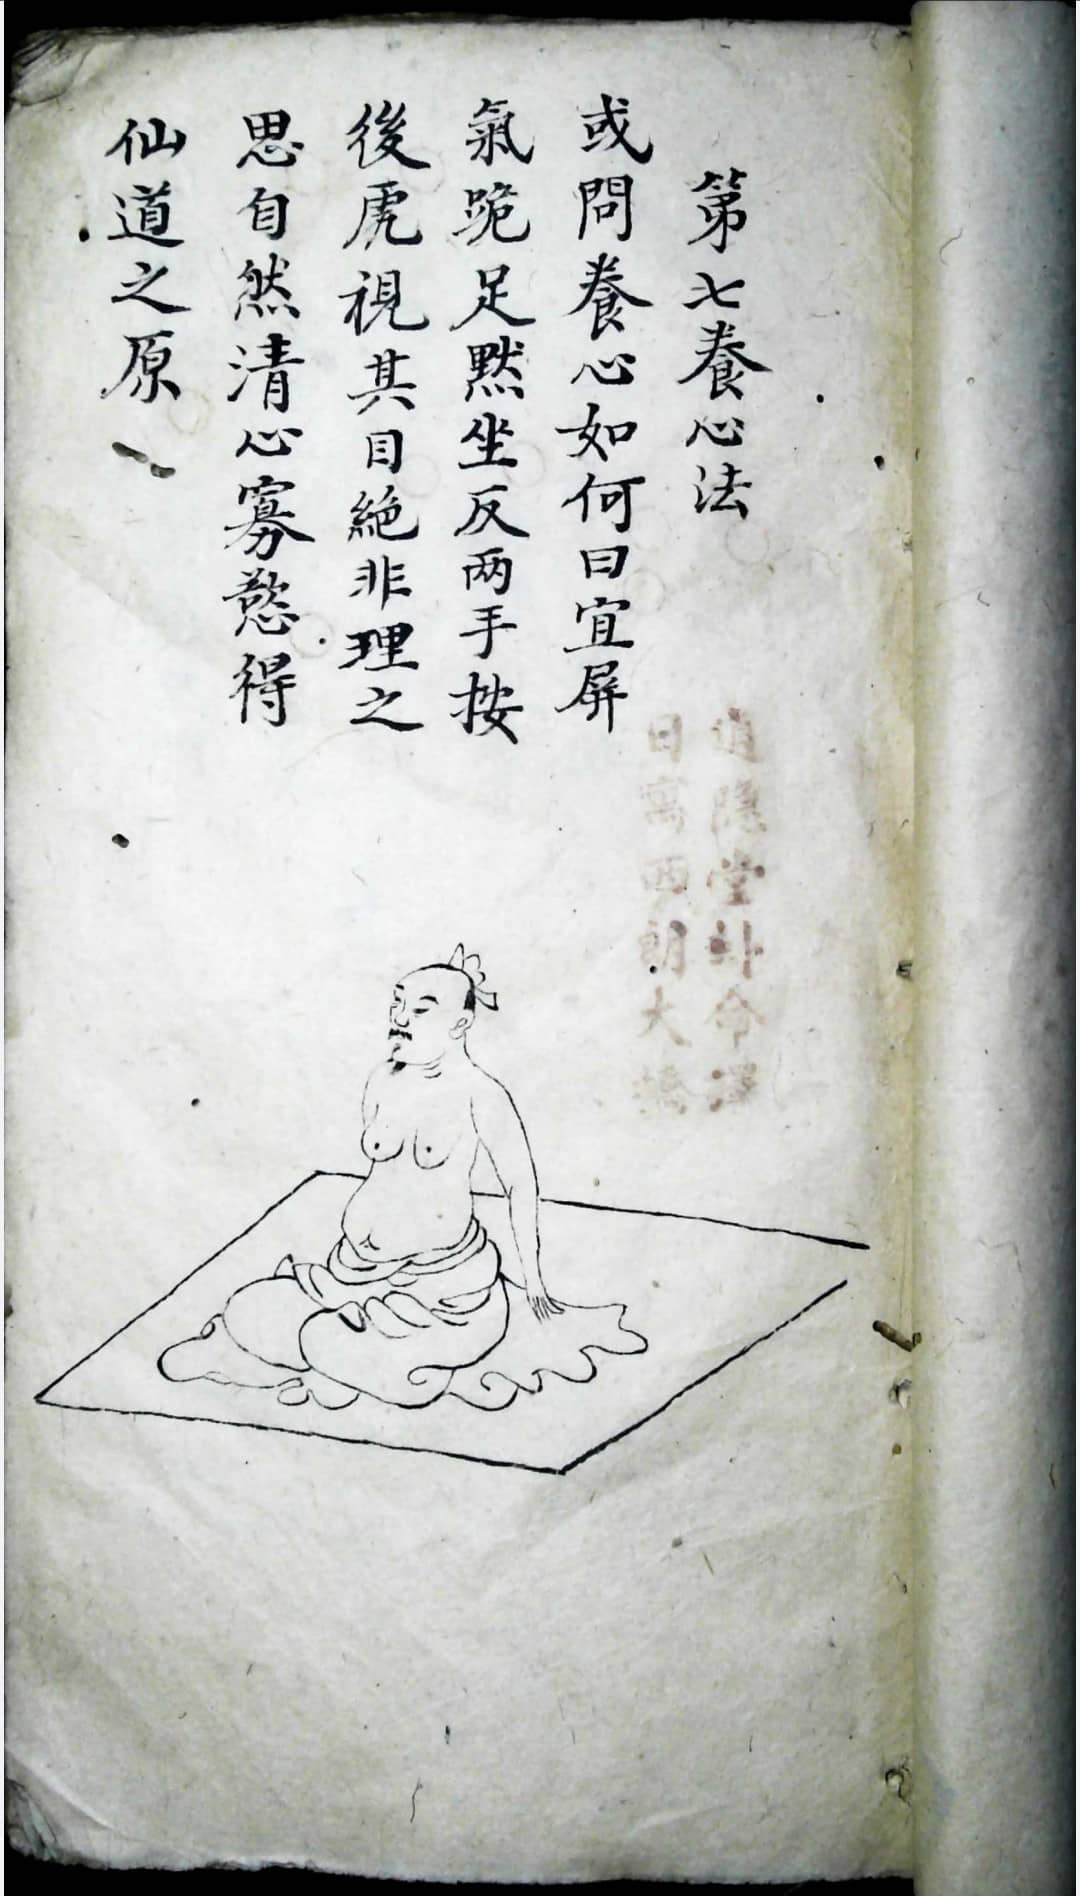 第七養心法
或問養心如何曰宜屏
氣跪足默坐反两手按
後虎視其目絶非理之
思自然清心寡慾得
仙道之原
隱堂
寓西朗大